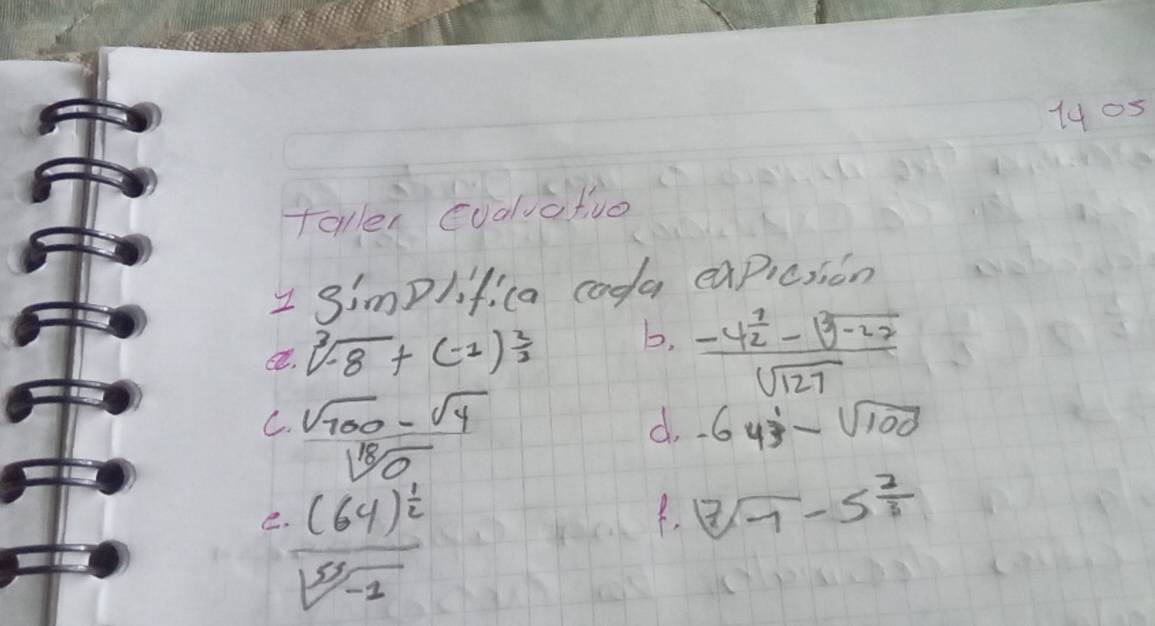 14 05
Taller Evaluativo
1 Simplifica cada expresión
a. ∛-8 + (-1)^(2/3)    b. (-4^(1/2) - ∛-27) / √127
c. (√100 - √4) / ¹⁸√0    d. -64^(1/3) - √100
e. (64)^(1/2) / ⁵⁵√-1    f. ⁷√-1 - 5^(2/3)